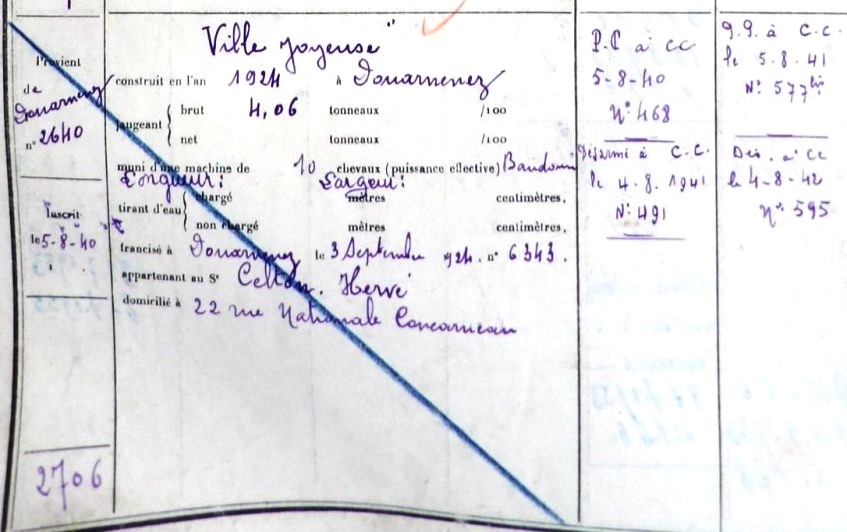 Provient
de
Douarnenez
n° 2640
Inscrit
le 5-8-40
2706
Ville Joyeuse"
construit en l'an 1924 à Douarnenez
jaugeant { brut 4,06 tonneaux /100
net tonneaux /100
muni d'une machine de 10 chevaux (puissance effective) Baudouin
Longueur: Largeur:
tirant d'eau { chargé mètres centimètres,
non chargé mètres centimètres,
francisé à Douarnenez le 3 Septembre 1924. n° 6343.
appartenant au Sr Celton. Hervé
domicilié à 22 rue Nationale Concarneau
P.P à CC
5-8-40
N° 468
Désarmé à C.C.
le 4.8.1941
N° 491
à C.C.
le 5.8.41
N° 577 bis
Dés. à CC
le 4-8-42
N° 595